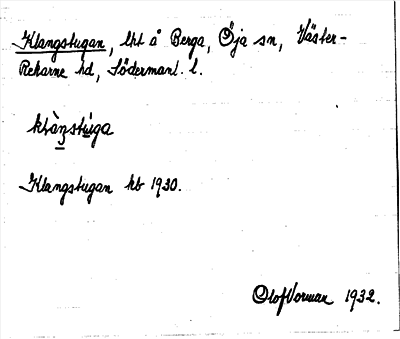 Klangstugan, lht å Berga, Öja sn, Väster-
Rekarne hd, Södermanl. l.
Klangstugan kb 1930.
Olof Vorman 1932.